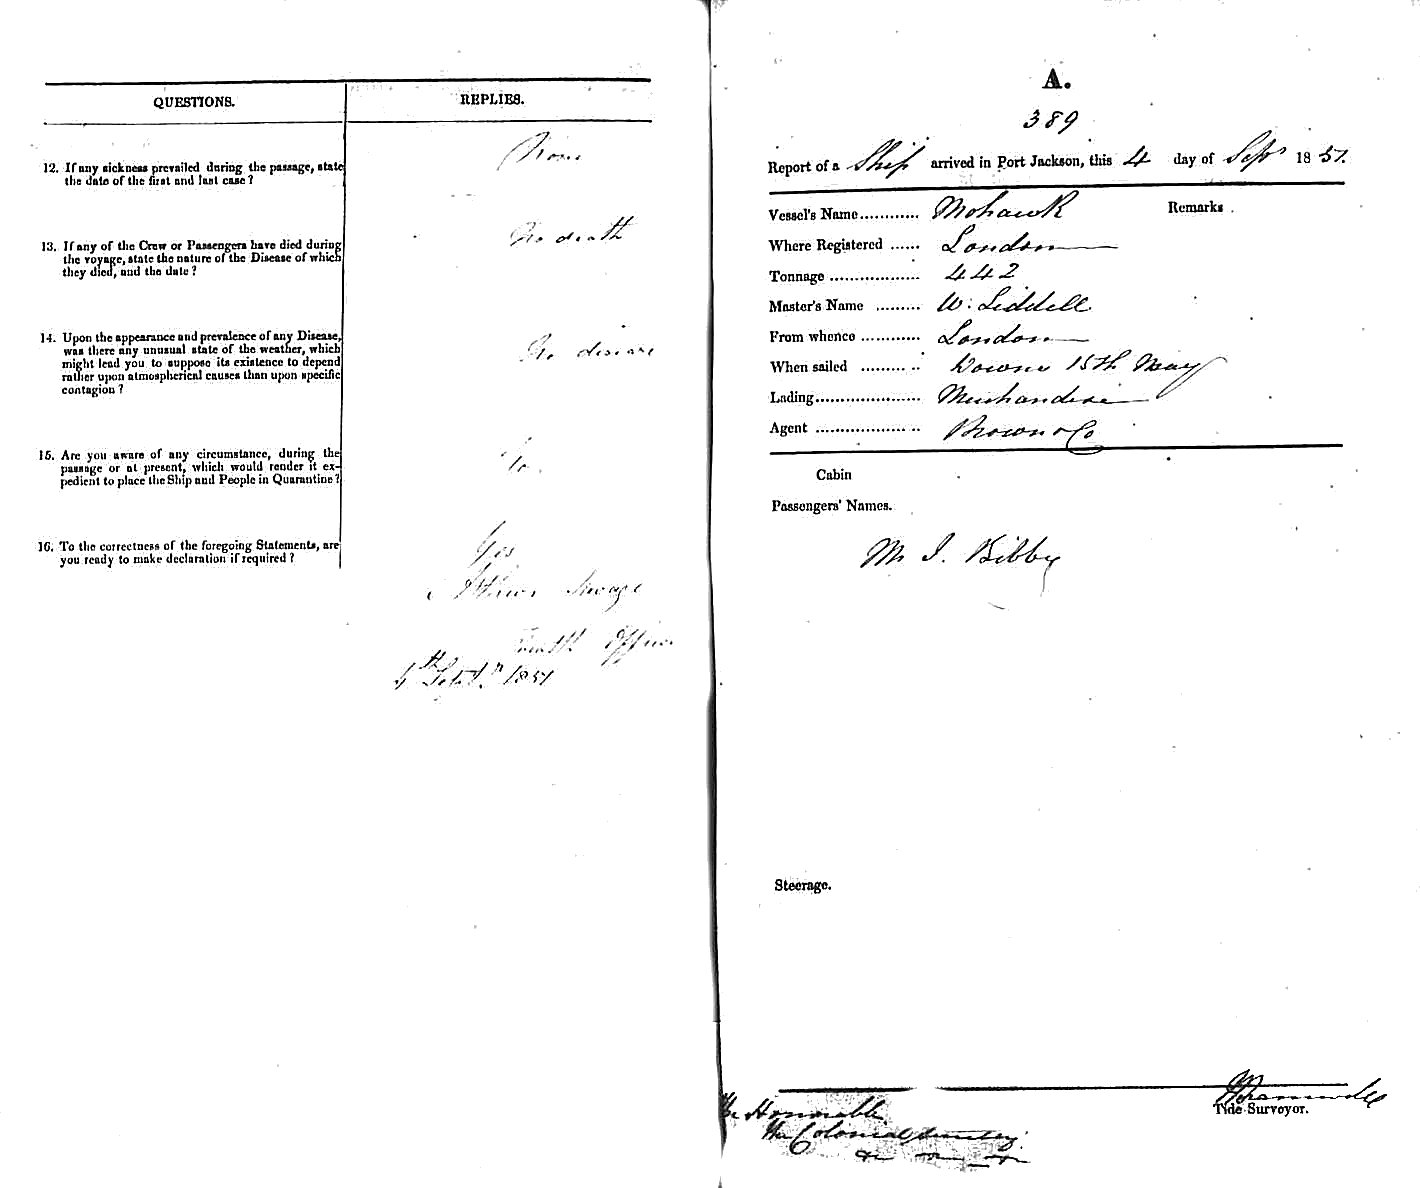 QUESTIONS.
REPLIES.
12. If any sickness prevailed during the passage, state
the date of the first and last case?
None
13. If any of the Crew or Passengers have died during
the voyage, state the nature of the Disease of which
they died, and the date?
No death
14. Upon the appearance and prevalence of any Disease,
was there any unusual state of the weather, which
might lead you to suppose its existence to depend
rather upon atmospherical causes than upon specific
contagion?
No disease
15. Are you aware of any circumstance, during the
passage or at present, which would render it ex-
pedient to place the Ship and People in Quarantine?
No.
16. To the correctness of the foregoing Statements, are
you ready to make declaration if required?
Yes
Savage
Health Officer
1851
A.
389
Report of a Ship arrived in Port Jackson, this 4 day of Sepr 1851.
Vessel's Name............ Mohawk
Remarks.
Where Registered ...... London
Tonnage .................. 442
Master's Name ......... W. Liddell
From whence ............ London
When sailed ........... Downs 15th May
Lading..................... Merchandise
Agent ..................... Brown & Co
Cabin
Passengers' Names.
Mr J. Bibby
Steerage.
Tide Surveyor.
The Honorable
The Colonial Secretary